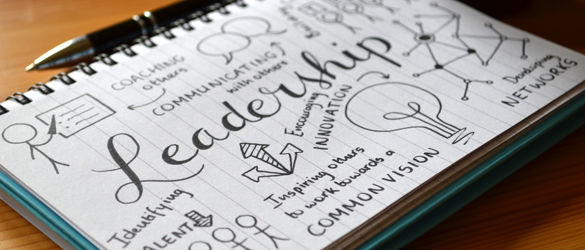 COACHING
others
COMMUNICATING
with others
Leadership
Encouraging
INNOVATION
Developing
NETWORKS
Identifying
TALENT
Inspiring others
to work towards a
COMMON VISION